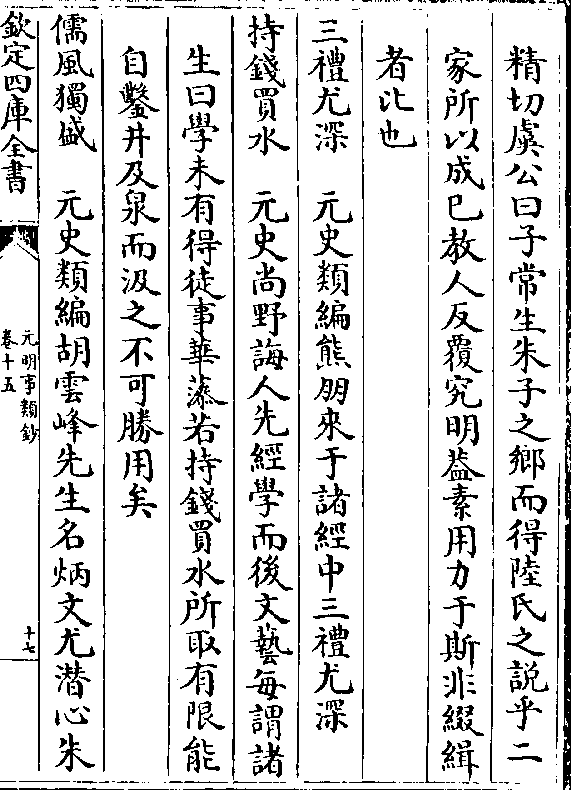 精切虞公曰子常生朱子之鄉而得陸氏之説乎二
家所以成已教人反覆究明葢素用力于斯非綴緝
者比也
三禮尤深　元史類編熊朋來于諸經中三禮尤深
持錢買水　元史尚野誨人先經學而後文藝每謂諸
生曰學未有得徒事華藻若持錢買水所取有限能
自鑿井及泉而汲之不可勝用矣
儒風獨盛　元史類編胡雲峰先生名炳文尤潜心朱
欽定四庫全書
元明事類鈔
卷十五
十七